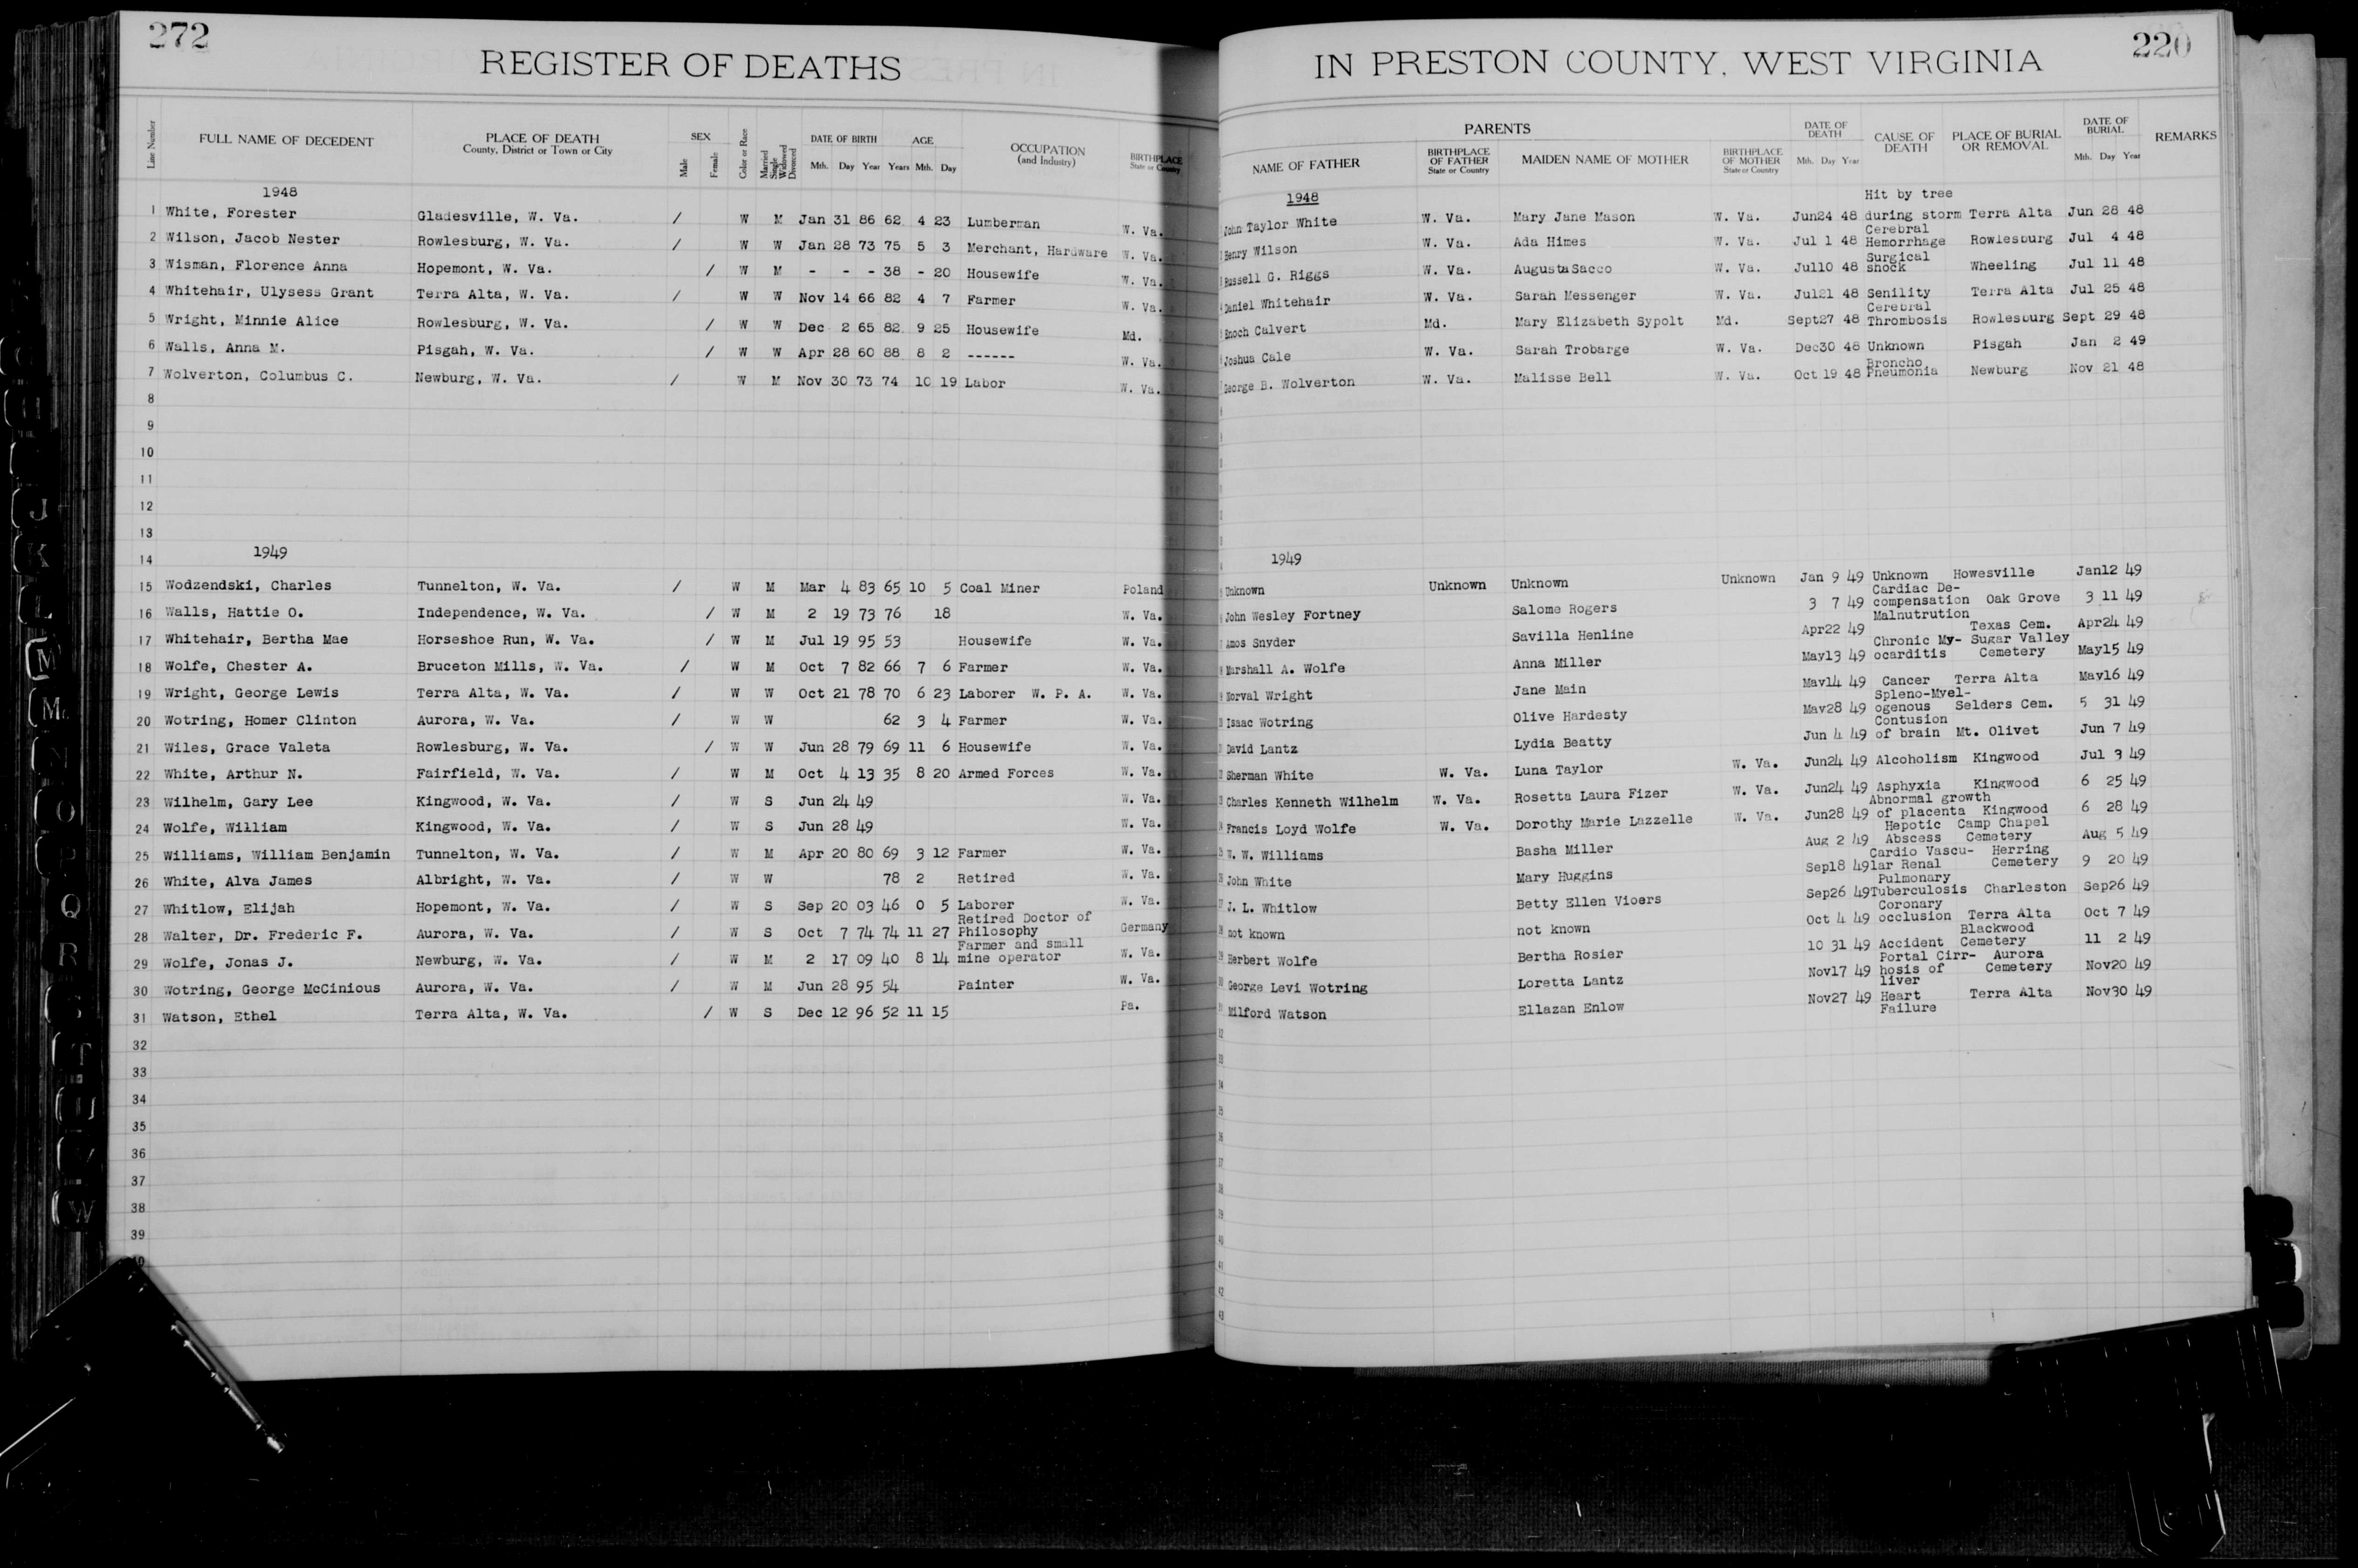 272
REGISTER OF DEATHS
Line Number
FULL NAME OF DECEDENT
PLACE OF DEATH
County, District or Town or City
SEX
Male
Female
Color or Race
Married
Single
Widowed
Divorced
DATE OF BIRTH
Mth. Day Year
AGE
Years Mth. Day
OCCUPATION
(and Industry)
BIRTHPLACE
State or Country
1948
1 White, Forester Gladesville, W. Va. / W M Jan 31 86 62 4 23 Lumberman W. Va.
2 Wilson, Jacob Nester Rowlesburg, W. Va. / W W Jan 28 73 75 5 3 Merchant, Hardware W. Va.
3 Wisman, Florence Anna Hopemont, W. Va. / W M - - - 38 - 20 Housewife W. Va.
4 Whitehair, Ulysess Grant Terra Alta, W. Va. / W W Nov 14 66 82 4 7 Farmer W. Va.
5 Wright, Minnie Alice Rowlesburg, W. Va. / W W Dec 2 65 82 9 25 Housewife Md.
6 Walls, Anna M. Pisgah, W. Va. / W W Apr 28 60 88 8 2 ------ W. Va.
7 Wolverton, Columbus C. Newburg, W. Va. / W M Nov 30 73 74 10 19 Labor W. Va.
8
9
10
11
12
13
1949
14
15 Wodzendski, Charles Tunnelton, W. Va. / W M Mar 4 83 65 10 5 Coal Miner Poland
16 Walls, Hattie O. Independence, W. Va. / W M 2 19 73 76 18 W. Va.
17 Whitehair, Bertha Mae Horseshoe Run, W. Va. / W M Jul 19 95 53 Housewife W. Va.
18 Wolfe, Chester A. Bruceton Mills, W. Va. / W M Oct 7 82 66 7 6 Farmer W. Va.
19 Wright, George Lewis Terra Alta, W. Va. / W W Oct 21 78 70 6 23 Laborer W. P. A. W. Va.
20 Wotring, Homer Clinton Aurora, W. Va. / W W 62 3 4 Farmer W. Va.
21 Wiles, Grace Valeta Rowlesburg, W. Va. / W W Jun 28 79 69 11 6 Housewife W. Va.
22 White, Arthur N. Fairfield, W. Va. / W M Oct 4 13 35 8 20 Armed Forces W. Va.
23 Wilhelm, Gary Lee Kingwood, W. Va. / W S Jun 24 49 W. Va.
24 Wolfe, William Kingwood, W. Va. / W S Jun 28 49 W. Va.
25 Williams, William Benjamin Tunnelton, W. Va. / W M Apr 20 80 69 3 12 Farmer W. Va.
26 White, Alva James Albright, W. Va. / W W 78 2 Retired W. Va.
27 Whitlow, Elijah Hopemont, W. Va. / W S Sep 20 03 46 0 5 Laborer W. Va.
Retired Doctor of
28 Walter, Dr. Frederic F. Aurora, W. Va. / W S Oct 7 74 74 11 27 Philosophy Germany
Farmer and small
29 Wolfe, Jonas J. Newburg, W. Va. / W M 2 17 09 40 8 14 mine operator W. Va.
30 Wotring, George McCinious Aurora, W. Va. / W M Jun 28 95 54 Painter W. Va.
31 Watson, Ethel Terra Alta, W. Va. / W S Dec 12 96 52 11 15 Pa.
32
33
34
35
36
37
38
39
J
K
L
M
Mc
N
O
P
Q
R
S
T
W
220
IN PRESTON COUNTY, WEST VIRGINIA
PARENTS
NAME OF FATHER
BIRTHPLACE
OF FATHER
State or Country
MAIDEN NAME OF MOTHER
BIRTHPLACE
OF MOTHER
State or Country
DATE OF
DEATH
Mth. Day Year
CAUSE OF
DEATH
PLACE OF BURIAL
OR REMOVAL
DATE OF
BURIAL
Mth. Day Year
REMARKS
1948
Hit by tree
John Taylor White W. Va. Mary Jane Mason W. Va. Jun24 48 during storm Terra Alta Jun 28 48
Cerebral
Henry Wilson W. Va. Ada Himes W. Va. Jul 1 48 Hemorrhage Rowlesburg Jul 4 48
Surgical
Russell G. Riggs W. Va. Augusta Sacco W. Va. Jul10 48 shock Wheeling Jul 11 48
Daniel Whitehair W. Va. Sarah Messenger W. Va. Jul21 48 Senility Terra Alta Jul 25 48
Cerebral
Enoch Calvert Md. Mary Elizabeth Sypolt Md. Sept27 48 Thrombosis Rowlesburg Sept 29 48
Joshua Cale W. Va. Sarah Trobarge W. Va. Dec30 48 Unknown Pisgah Jan 2 49
Broncho
George B. Wolverton W. Va. Malisse Bell W. Va. Oct 19 48 Pneumonia Newburg Nov 21 48
1949
Unknown Unknown Unknown Unknown Jan 9 49 Unknown Howesville Jan12 49
Cardiac De-
John Wesley Fortney Salome Rogers 3 7 49 compensation Oak Grove 3 11 49
Malnutrution
Amos Snyder Savilla Henline Apr22 49 Texas Cem. Apr24 49
Chronic My- Sugar Valley
Marshall A. Wolfe Anna Miller May13 49 ocarditis Cemetery May15 49
Norval Wright Jane Main May14 49 Cancer Terra Alta May16 49
Spleno-Myel-
Isaac Wotring Olive Hardesty May28 49 ogenous Selders Cem. 5 31 49
Contusion
David Lantz Lydia Beatty Jun 4 49 of brain Mt. Olivet Jun 7 49
Sherman White W. Va. Luna Taylor W. Va. Jun24 49 Alcoholism Kingwood Jul 3 49
Charles Kenneth Wilhelm W. Va. Rosetta Laura Fizer W. Va. Jun24 49 Asphyxia Kingwood 6 25 49
Abnormal growth
Francis Loyd Wolfe W. Va. Dorothy Marie Lazzelle W. Va. Jun28 49 of placenta Kingwood 6 28 49
Hepotic Camp Chapel
W. W. Williams Basha Miller Aug 2 49 Abscess Cemetery Aug 5 49
Cardio Vascu- Herring
John White Mary Huggins Sep18 49 lar Renal Cemetery 9 20 49
Pulmonary
J. L. Whitlow Betty Ellen Vioers Sep26 49 Tuberculosis Charleston Sep26 49
Coronary
not known not known Oct 4 49 occlusion Terra Alta Oct 7 49
Blackwood
Herbert Wolfe Bertha Rosier 10 31 49 Accident Cemetery 11 2 49
Portal Cirr- Aurora
George Levi Wotring Loretta Lantz Nov17 49 hosis of Cemetery Nov20 49
liver
Milford Watson Ellazan Enlow Nov27 49 Heart Terra Alta Nov30 49
Failure